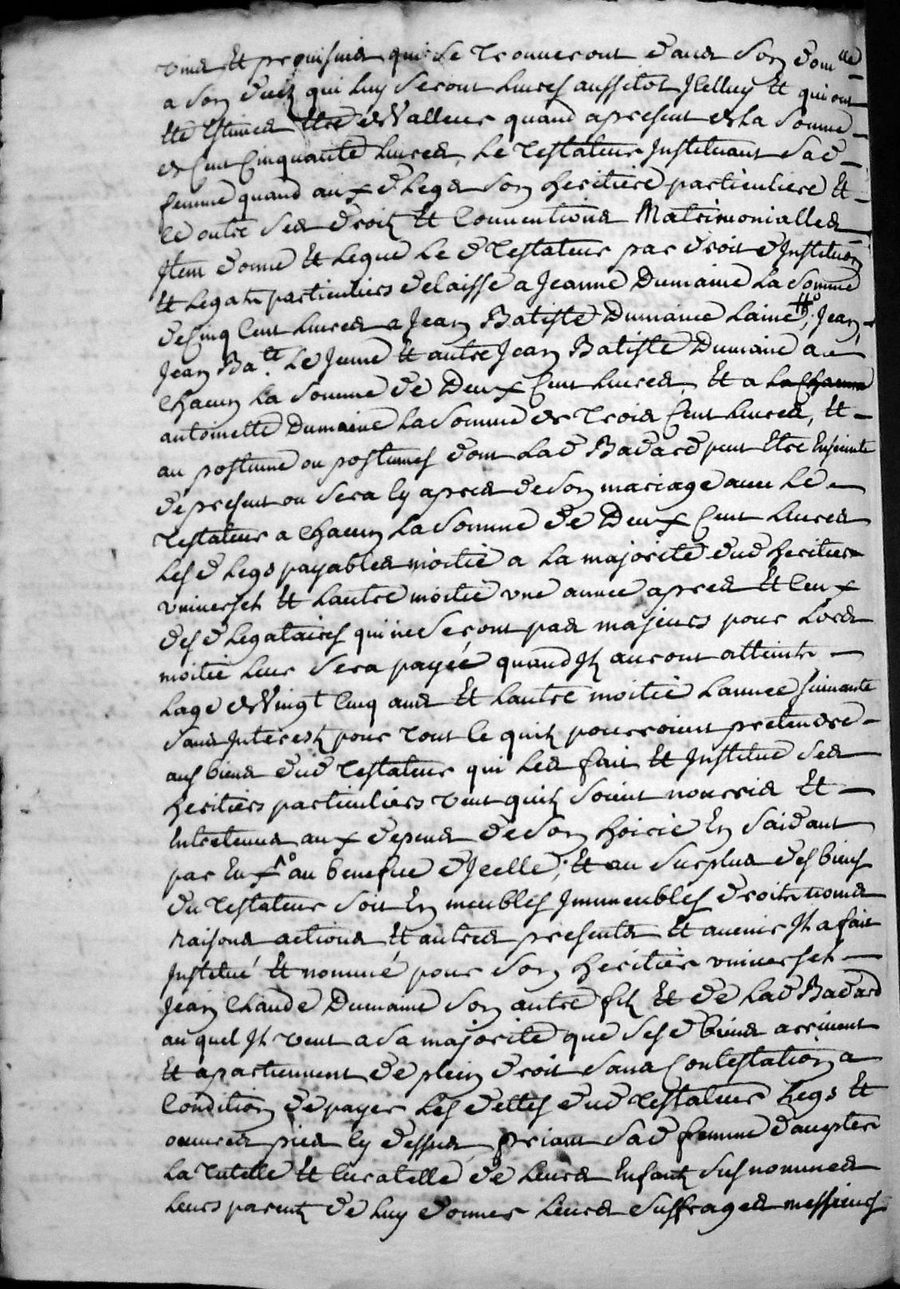 vins et provisions qui se trouveront dans son dom.lle
a son deces qui luy seront livres aussitot Icelluy et qui ont
ete estimes etre de Valleur quand apresent de la somme
de Cent Cinquante livres, Le Testateur Instituant sad.
femme quand aux d. Legs son heritiere particuliere et
Ce outre ses droits et Conventions Matrimonialles
Item donne et legue le d. Testateur par droit d'Institution
et Legats particuliers delaisse a Jeanne Dumaine La Somme
de Cinq Cent livres a Jean Batiste Dumaine Lainé, Jean
Jean Ba.te Le Jeune et autre Jean Batiste Dumaine a
Chacun La Somme de Deux Cent livres, et a
antoinette Dumaine La Somme de Trois Cent livres, et
au postume ou postumes dont Lad. Badard peut etre Enseinte
de present ou sera cy apres de son mariage avec Le
Testateur a Chacun La Somme de Deux Cent livres
Les d. Legs payables moitié a La majorité dud. heritier
universel et Lautre moitié une année apres et Ceux
des d. Legataires qui ne seront pas majeurs pour Lors
moitié leur sera payée quand Ils auront atteints
Lage de Vingt Cinq ans et Lautre moitié Lannée suivante
sans Interests pour Tout ce quils pourroient pretendre
aus biens dud. Testateur qui les fait et Institue ses
heritiers particuliers veut quils soient nourris et
Entretenus aux depens de son hoirie En saidant
par Eux au benefice d'Icelle; et au surplus des biens
du Testateur soit En meubles Immeubles droits noms
raisons actions et autres presents et avenir Il a fait
Institué et nommé pour son heritier universel
Jean Claude Dumaine son autre fils et de lad. Badard
auquel Il veut a sa majorité que ses d. biens arrivent
et apartiennent de plein droit sans Contestation a
Condition de payer Les dettes dud. Testateur Legs et
œuvres pies cy dessus, priant sad. femme daccepter
La tutelle et Curatelle de leurs Enfants susnommes
Leurs parents de luy donner leurs suffrages messieurs